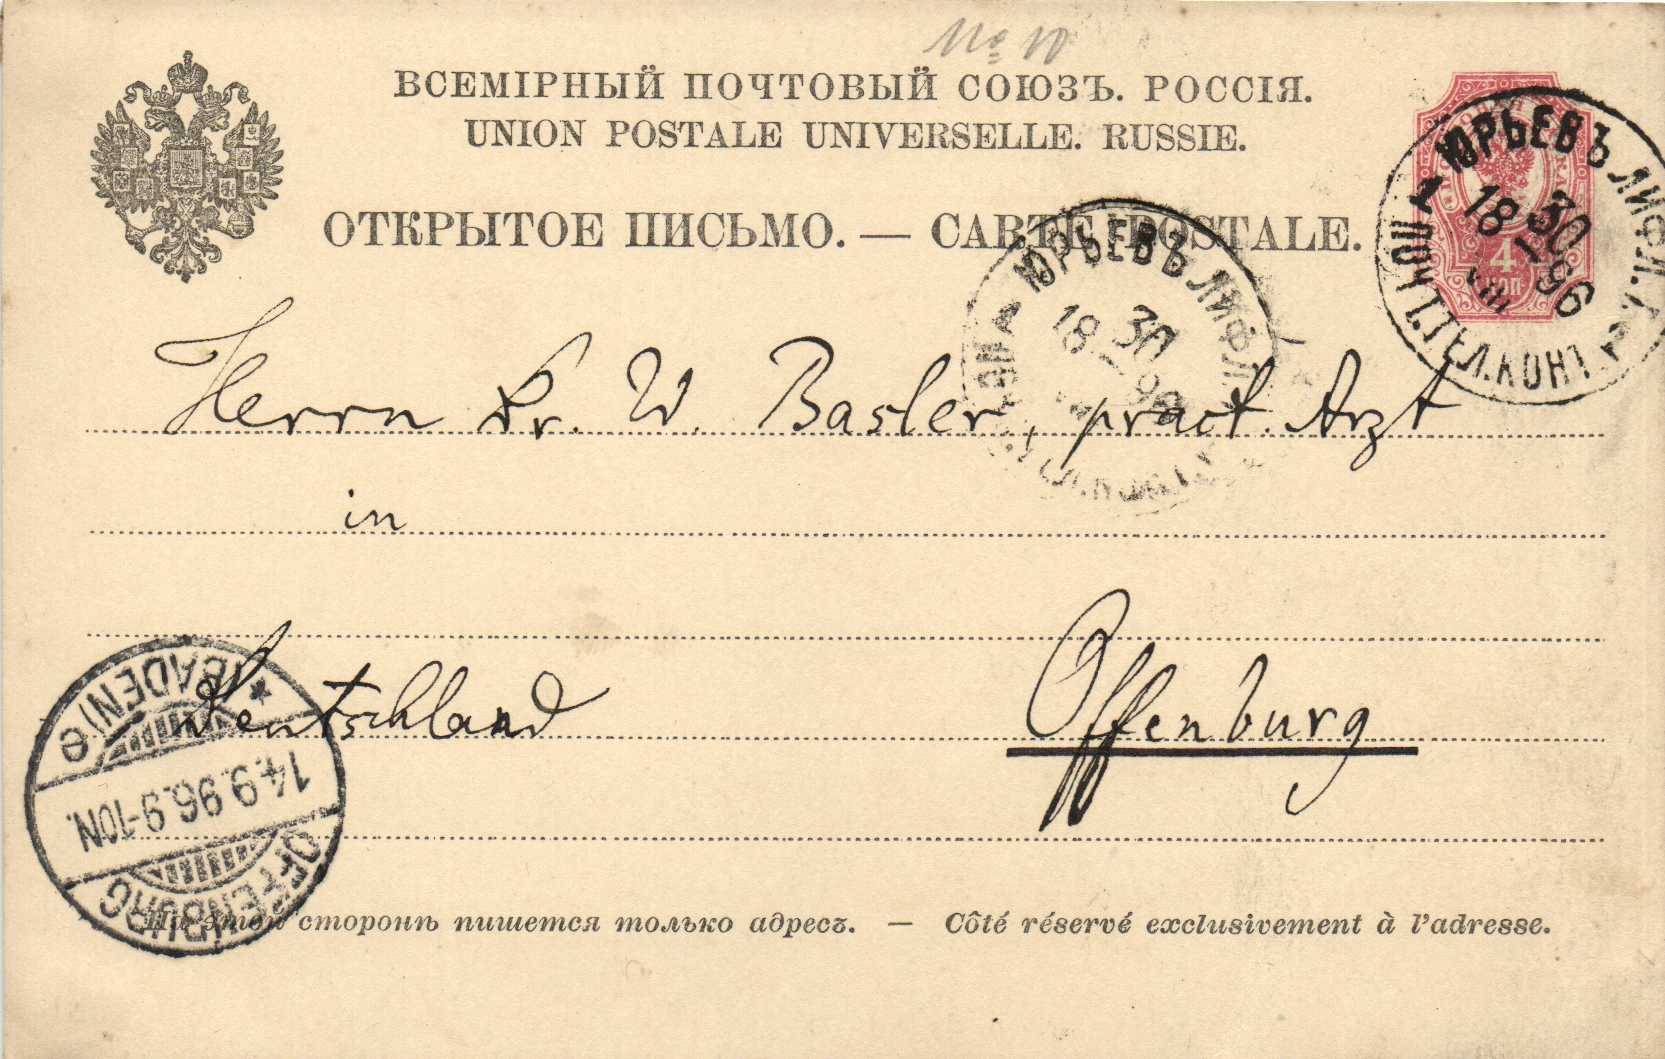 No 10
ВСЕМІРНЫЙ ПОЧТОВЫЙ СОЮЗЪ. РОССІЯ.
UNION POSTALE UNIVERSELLE. RUSSIE.
ОТКРЫТОЕ ПИСЬМО. — CARTE POSTALE.
4
КОП
ЮРЬЕВЪ ЛИФЛ. Г.
30
VIII
1896
ЮРЬЕВЪ ЛИФЛ.
30
18 96
Herrn Dr. W. Basler, pract. Arzt
in
Deutschland
Offenburg
OFFENBURG
14.9.96.9-10N.
(BADEN) e
На этой сторонѣ пишется только адресъ. — Côté réservé exclusivement à l'adresse.